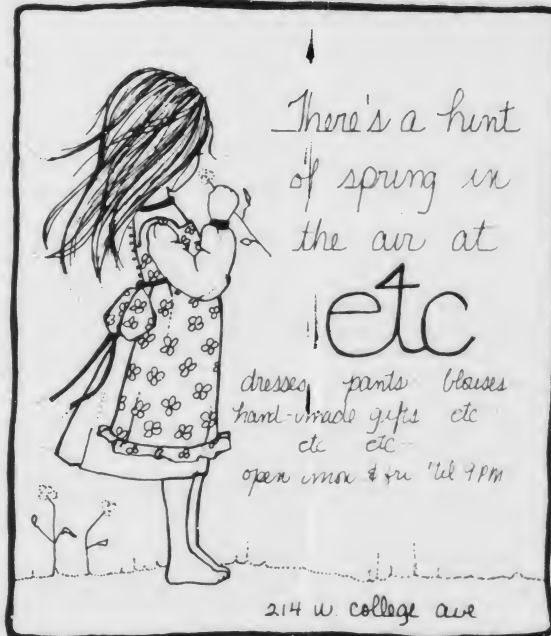 There's a hint
of spring in
the air at
etc
dresses pants blouses
hand-made gifts etc
etc etc
open mon & fri 'til 9 PM
214 w. college ave